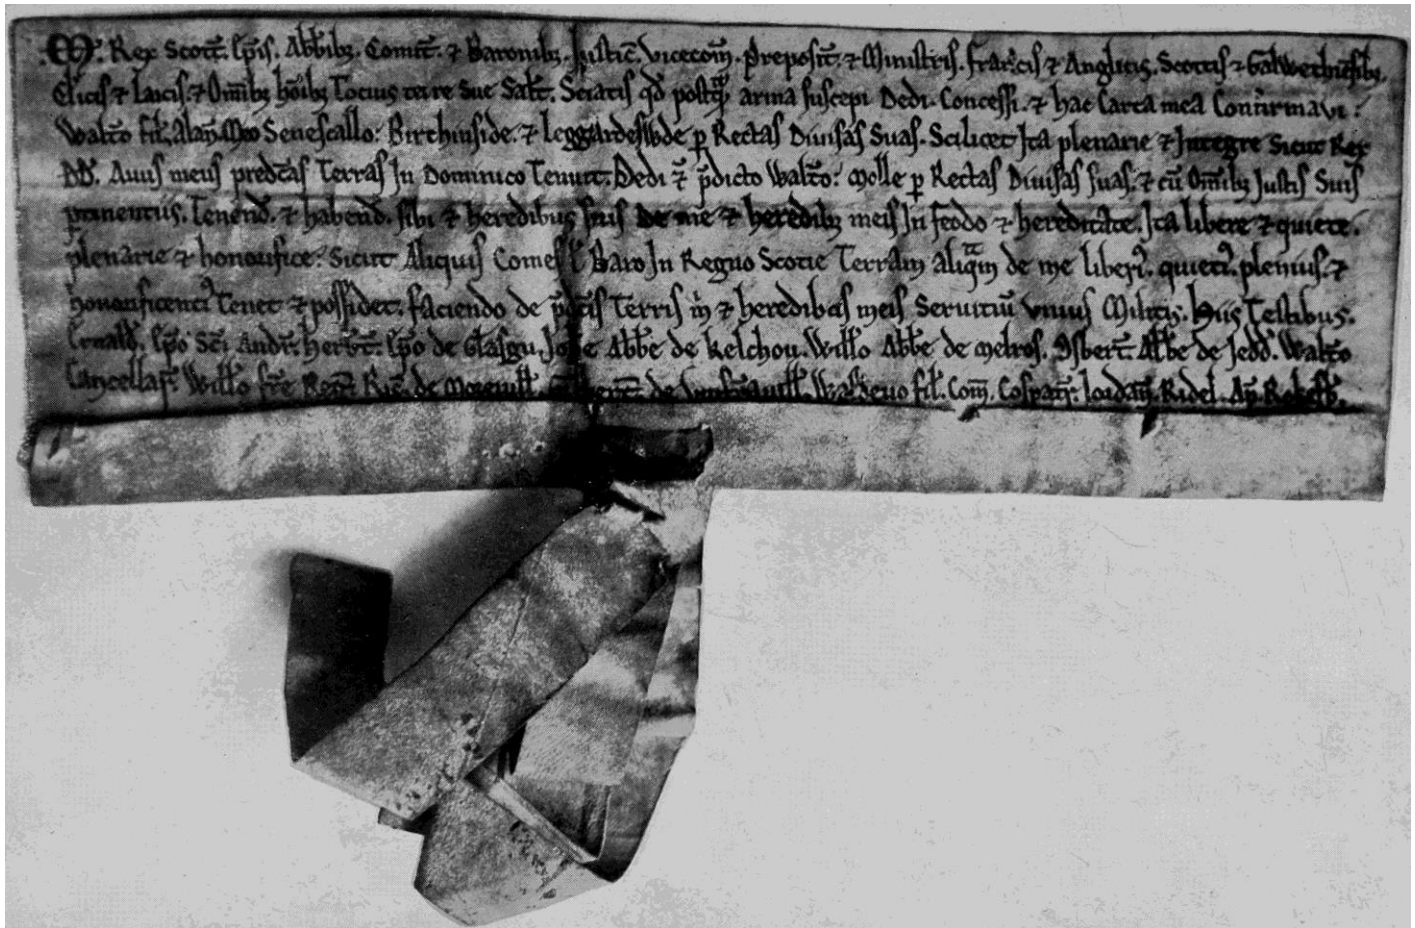 .M. Rex Scott. Ep̄is. Abb̄ibꝫ. Comit̄. ⁊ Baronibꝫ. Justic̄. Vicecom̄. Preposit̄. ⁊ Ministris. Francis ⁊ Anglicis. Scottis ⁊ Galwethiēsibꝫ.
Cl̄icis ⁊ Laicis. ⁊ Om̄ibꝫ ho̅ibꝫ Tocius terre Sue Sal̄t. Sciatis qd̄ postqᵃm arma suscepi Dedi. Concessi. ⁊ hac Carta mea Confirmavi :
Walt̄o fil̄. Alan̄. Meo Senescallo: Birchinside. ⁊ Leggardeswde ꝑ Rectas Diuisas Suas. Scilicet Ita plenarie ⁊ Integre Sicut Rex
DD̄. Auus meus predc̄as Terras In Dominico Tenuit. Dedi ⁊ p̄dicto Walt̄o: Molle ꝑ Rectas Diuisas suas. ⁊ cū Om̄ibꝫ Justis Suis
ꝑtinentiis. Tenend̄. ⁊ habend̄. sibi ⁊ heredibus suis De me ⁊ heredibꝫ meis In feodo ⁊ hereditate. Ita libere ⁊ quiete.
plenarie ⁊ honorifice: Sicut Aliquis Comes ł Baro In Regno Scotie Terram aliqᵃm de me liberiꝰ. quietiꝰ. pleniꝰ. ⁊
honorificentiꝰ Tenet ⁊ possidet. faciendo de p̄dc̄is Terris m̄ ⁊ heredibus meis Seruitiū Vnius Militis. Hiis Testibus.
Ernald̄. Ep̄o Sc̄i Andr̄. Herb̄t. Ep̄o de Glasgu. Joh̄e Abb̄e de Kelchou. Will̄o Abb̄e de Melros. Osbert̄. Abb̄e de Jedd̄. Walt̄o
Cancellar̄. Will̄o fr̄e Reg̅. Ric̄. de Moreuill̄. de Vmfrauill̄. Waldeuo fil̄. Com̄. Cospat̄. Jordan̄. Ridel. Ap̄. Rokesb̄.